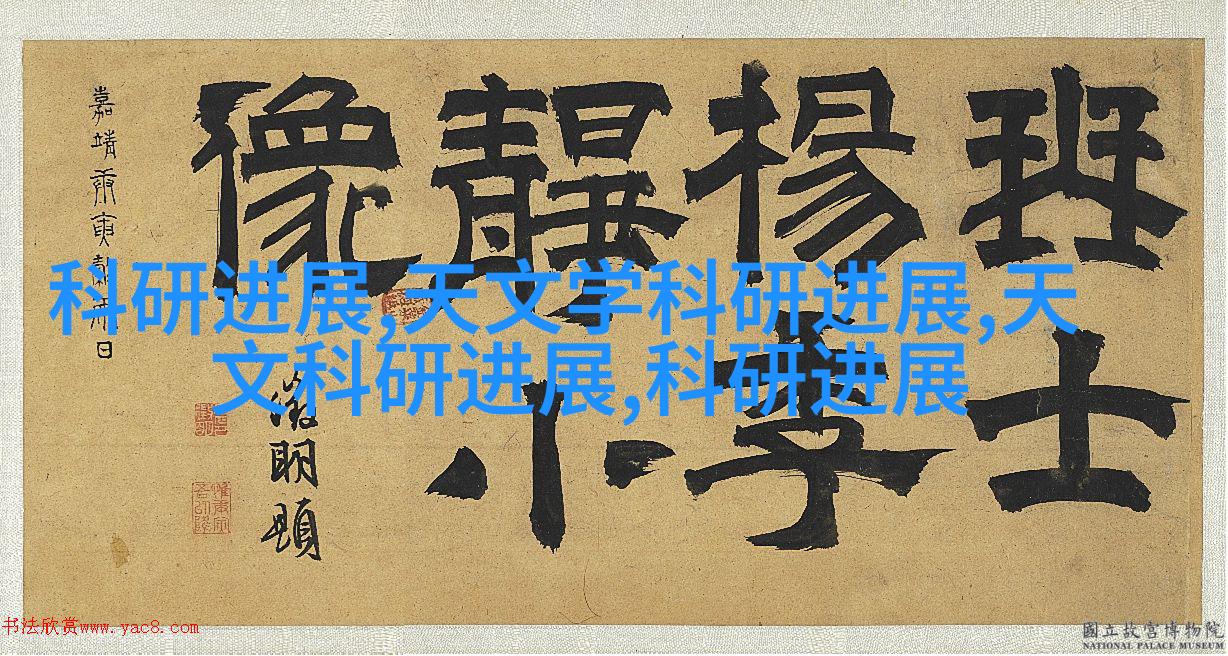 琴士
楊季
靜小
像
徵明題
嘉靖庚寅
日
科研进展,天文学科研进展,天
文科研进展,科研进展
书法欣赏www.yac8.com
國立故宮博物院
NATIONAL PALACE MUSEUM